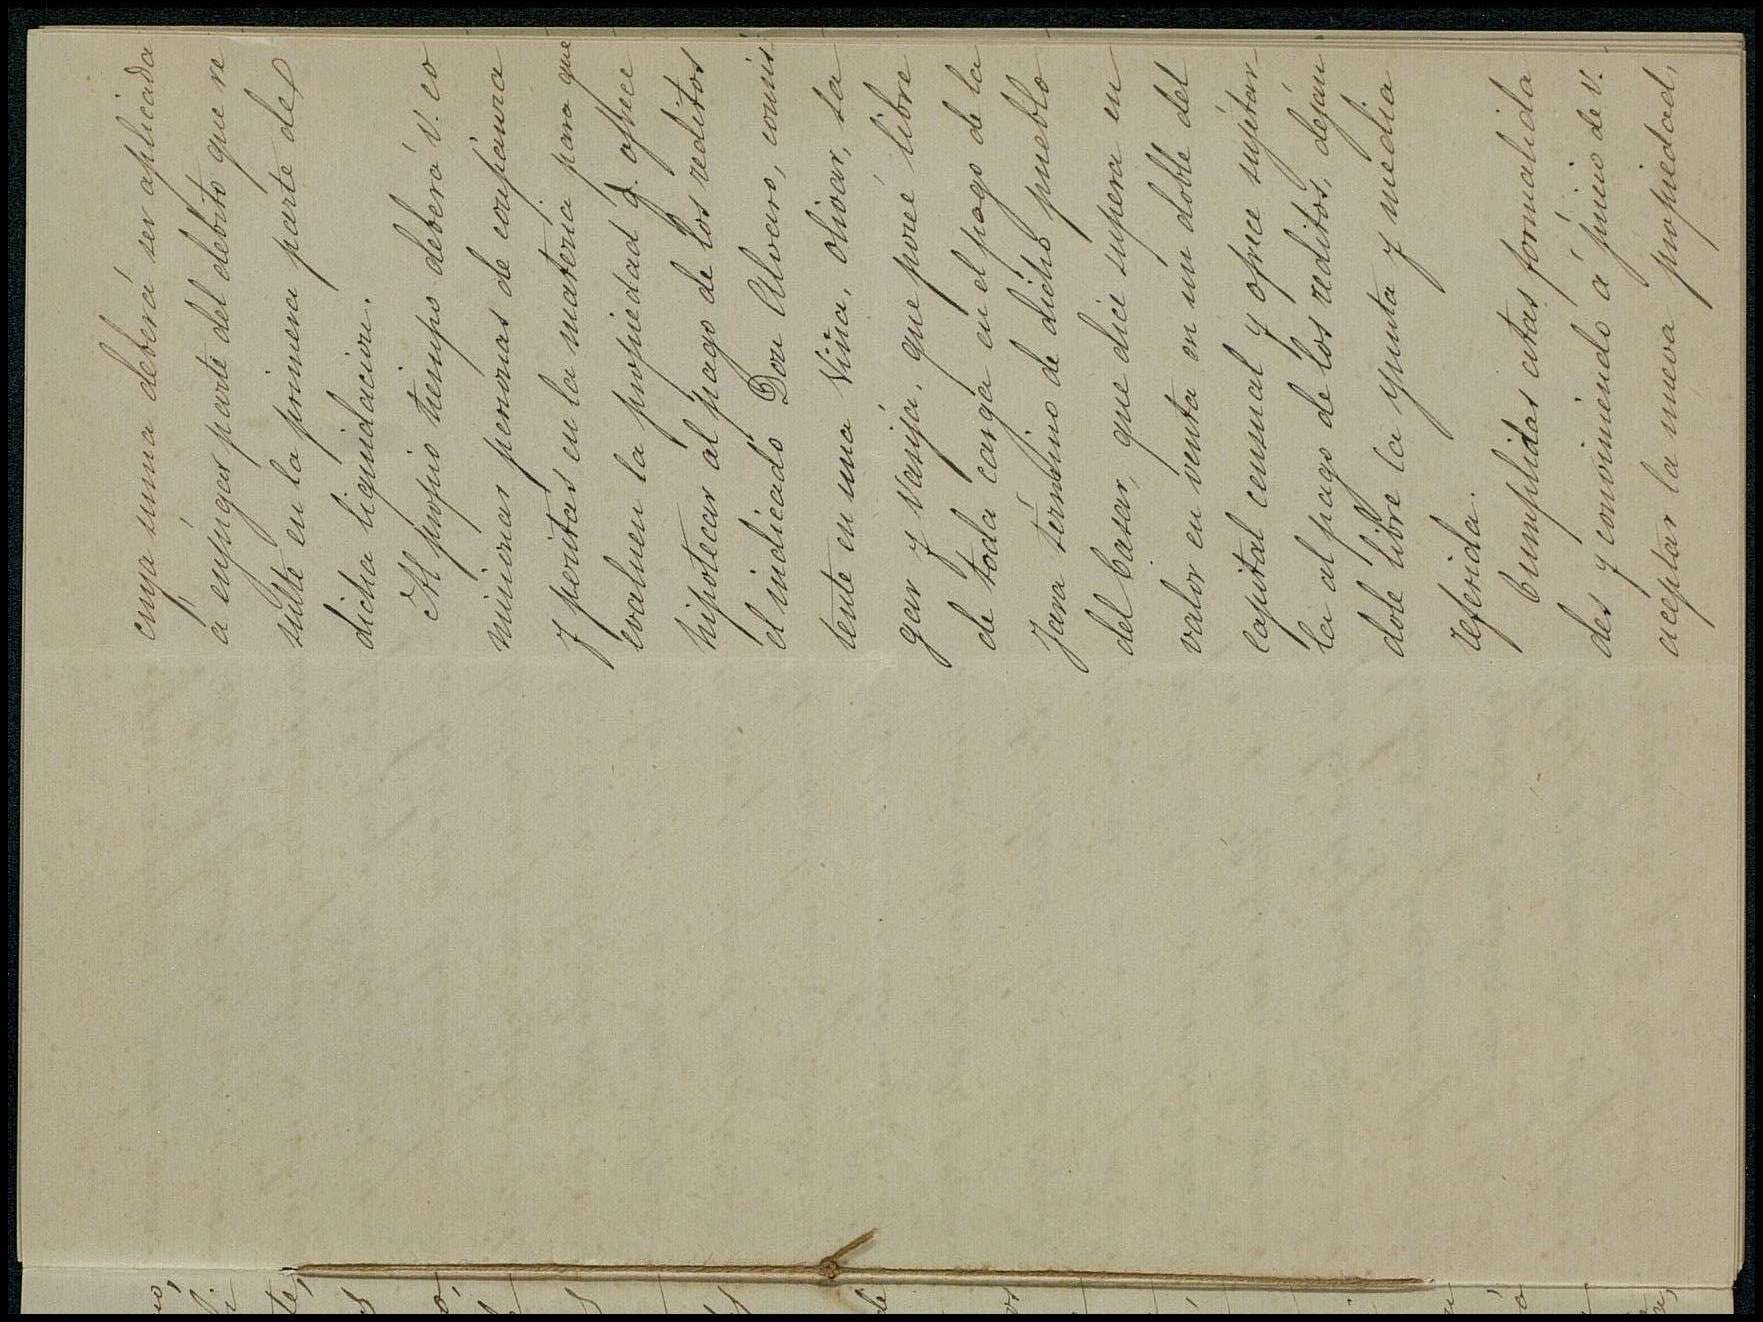 cuya suma deberá ser aplicada
á enjugar parte del debito que re
sulte en la primera parte de
dicha liquidacion.
Al propio tiempo deberá V. co
misionar personas de confianza
y peritas en la materia para que
evaluen la propiedad q. ofrece
hipotecar al pago de los reditos
el indicado Don Alvaro, consis
tente en una Viña, olivar, la
gar y vasija, que poseé libre
de toda carga en el pago de la
Jara término de dicho pueblo
del Casar, que dice supera en
valor en venta en un doble del
capital censual y ofrece sujetar
la al pago de los reditos, dejan
dole libre la yunta y media
referida.
Cumplidas estas formalida
des y conviniendo á juicio de V.
aceptar la nueva propiedad,